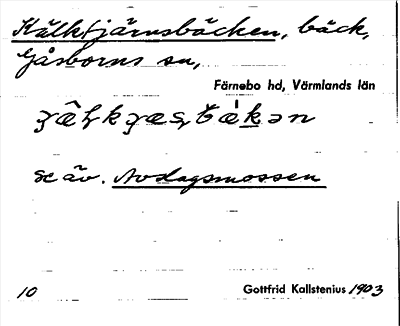 Kälktjärnsbäcken, bäck,
Gåsborns sn,
Färnebo hd, Värmlands län
se äv. Avdagsmossen
10 Gottfrid Kallstenius 1903